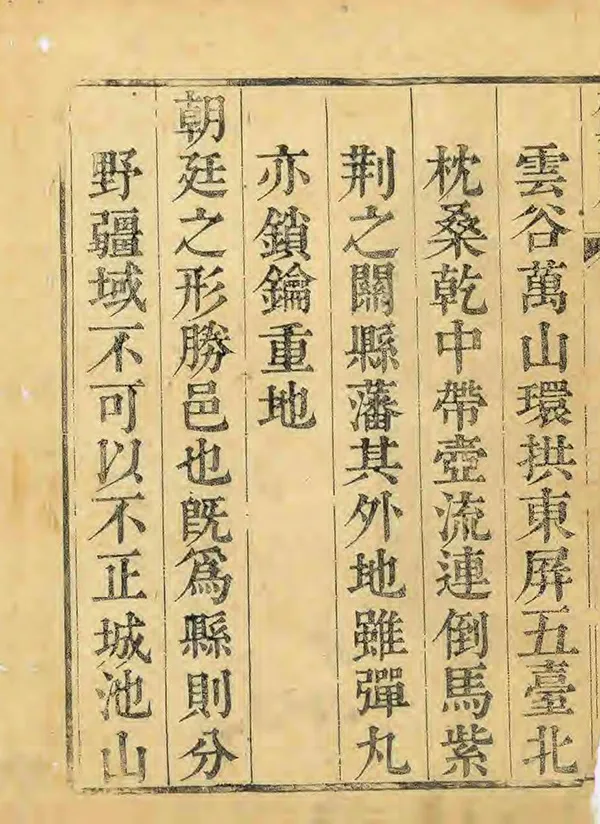 雲谷萬山環拱東屏五臺北
枕桑乾中帶壺流連倒馬紫
荆之關縣藩其外地雖彈丸
亦鎖鑰重地
朝廷之形勝邑也既爲縣則分
野疆域不可以不正城池山